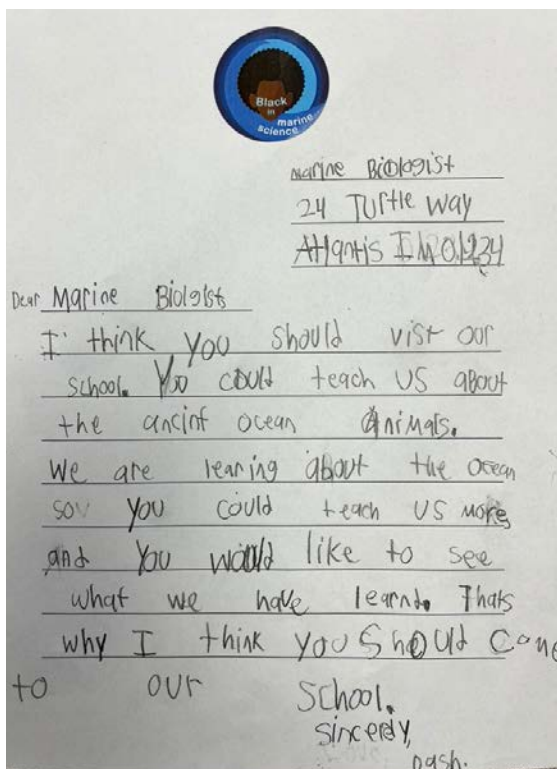 Black
in
marine
science
Marine Biologist
24 Turtle Way
Atlantis IM 01234
Dear Marine Biolgists
I think you should vist our
school. You could teach us about
the ancint ocean animals.
We are learing about the ocean
so you could teach us more
and you would like to see
what we have learnd. Thats
why I think you should come
to our school.
sincerdy,
Dash.